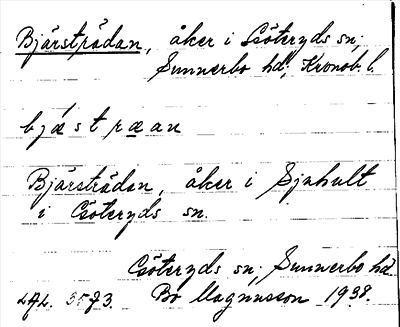 Bjärsträdan, åker i Göteryds sn;
Sunnerbo hd, Kronob. l.
bjæstræan
Bjärsträdan, åker i Sjuhult
i Göteryds sn.
Göteryds sn; Sunnerbo hd
3573. Bo Magnusson 1938.